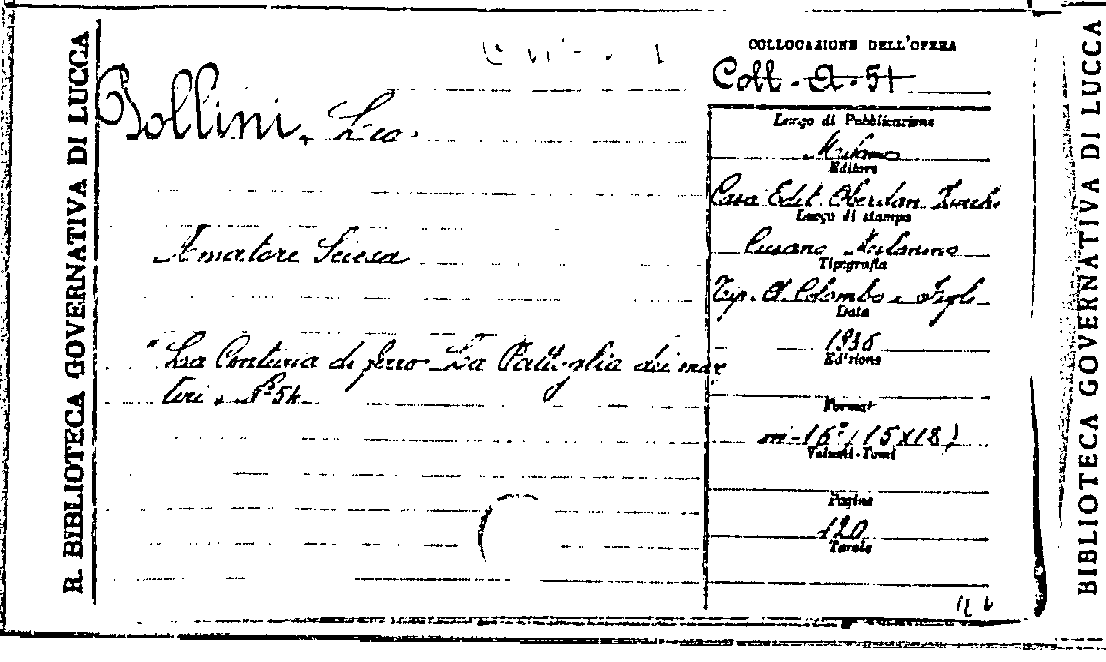 R. BIBLIOTECA GOVERNATIVA DI LUCCA
COLLOCAZIONE DELL'OPERA
Coll. A. 51
Pollini, Leo.
Amatore Sciesa
"La Centuria di ferro - La Battaglia dei mar
tiri
Luogo di Pubblicazione
Milano
Editore
Casa Edit. Oberdan Zucchi
Luogo di stampa
Cusano Milanino
Tipografia
Tip. A. Colombo e Figli
Data
1936
Edizione
Formato
in-16° (15x18)
Volumi-Tomi
Pagine
120
Tavole
BIBLIOTECA GOVERNATIVA DI LUCCA